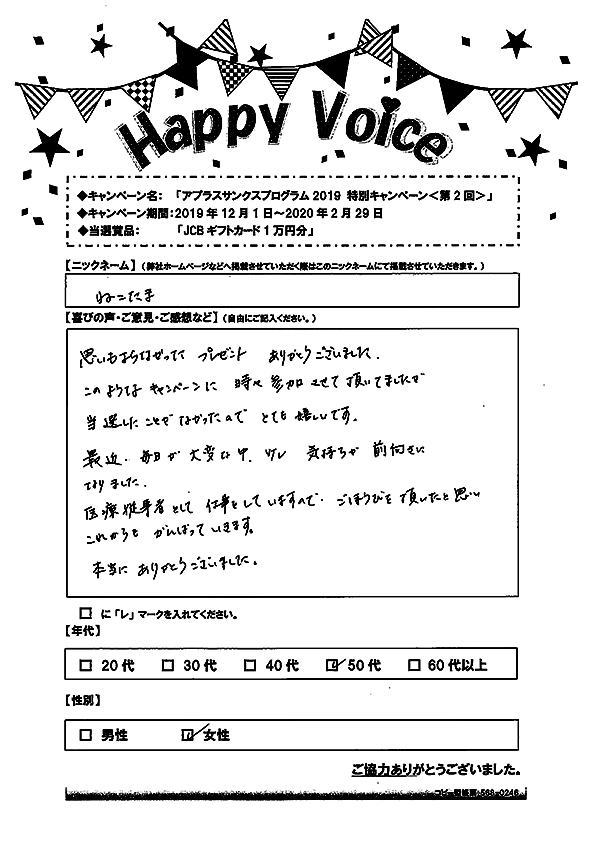 Happy Voice
◆キャンペーン名: 「アプラスサンクスプログラム2019 特別キャンペーン<第2回>」
◆キャンペーン期間:2019年12月1日~2020年2月29日
◆当選賞品: 「JCBギフトカード1万円分」
【ニックネーム】(弊社ホームページなどへ掲載させていただく際はこのニックネームにて掲載させていただきます。)
ねこたま
【喜びの声・ご意見・ご感想など】(自由にご記入ください。)
思いもよらなかった プレゼント ありがとうございました.
このような キャンペーンに 時々 参加 させて 頂いてましたが
当選したことが なかったので とても 嬉しいです。
最近、毎日が 大変な中、少し 気持ちが 前向きに
なりました.
医療従事者として 仕事をしていますので、ごほうびを 頂いたと思い
これからも がんばっていきます。
本当に ありがとうございました。
□ に「レ」マークを入れてください。
【年代】
□ 20代 □ 30代 □ 40代 ☑ 50代 □ 60代以上
【性別】
□ 男性 ☑ 女性
ご協力ありがとうございました。